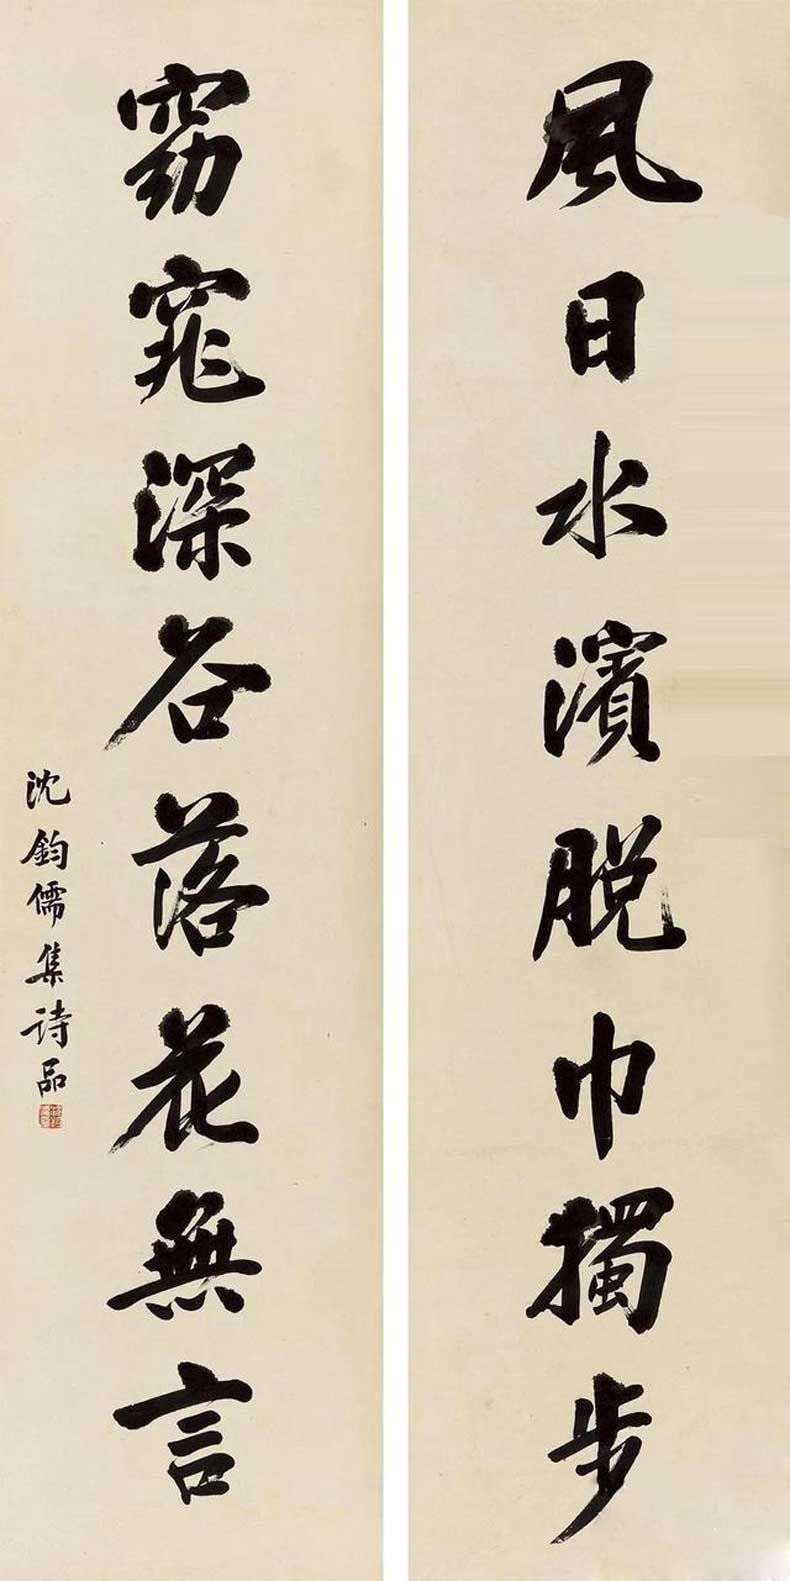 風日水濱脫巾獨步
窈窕深谷落花無言
沈鈞儒集诗品